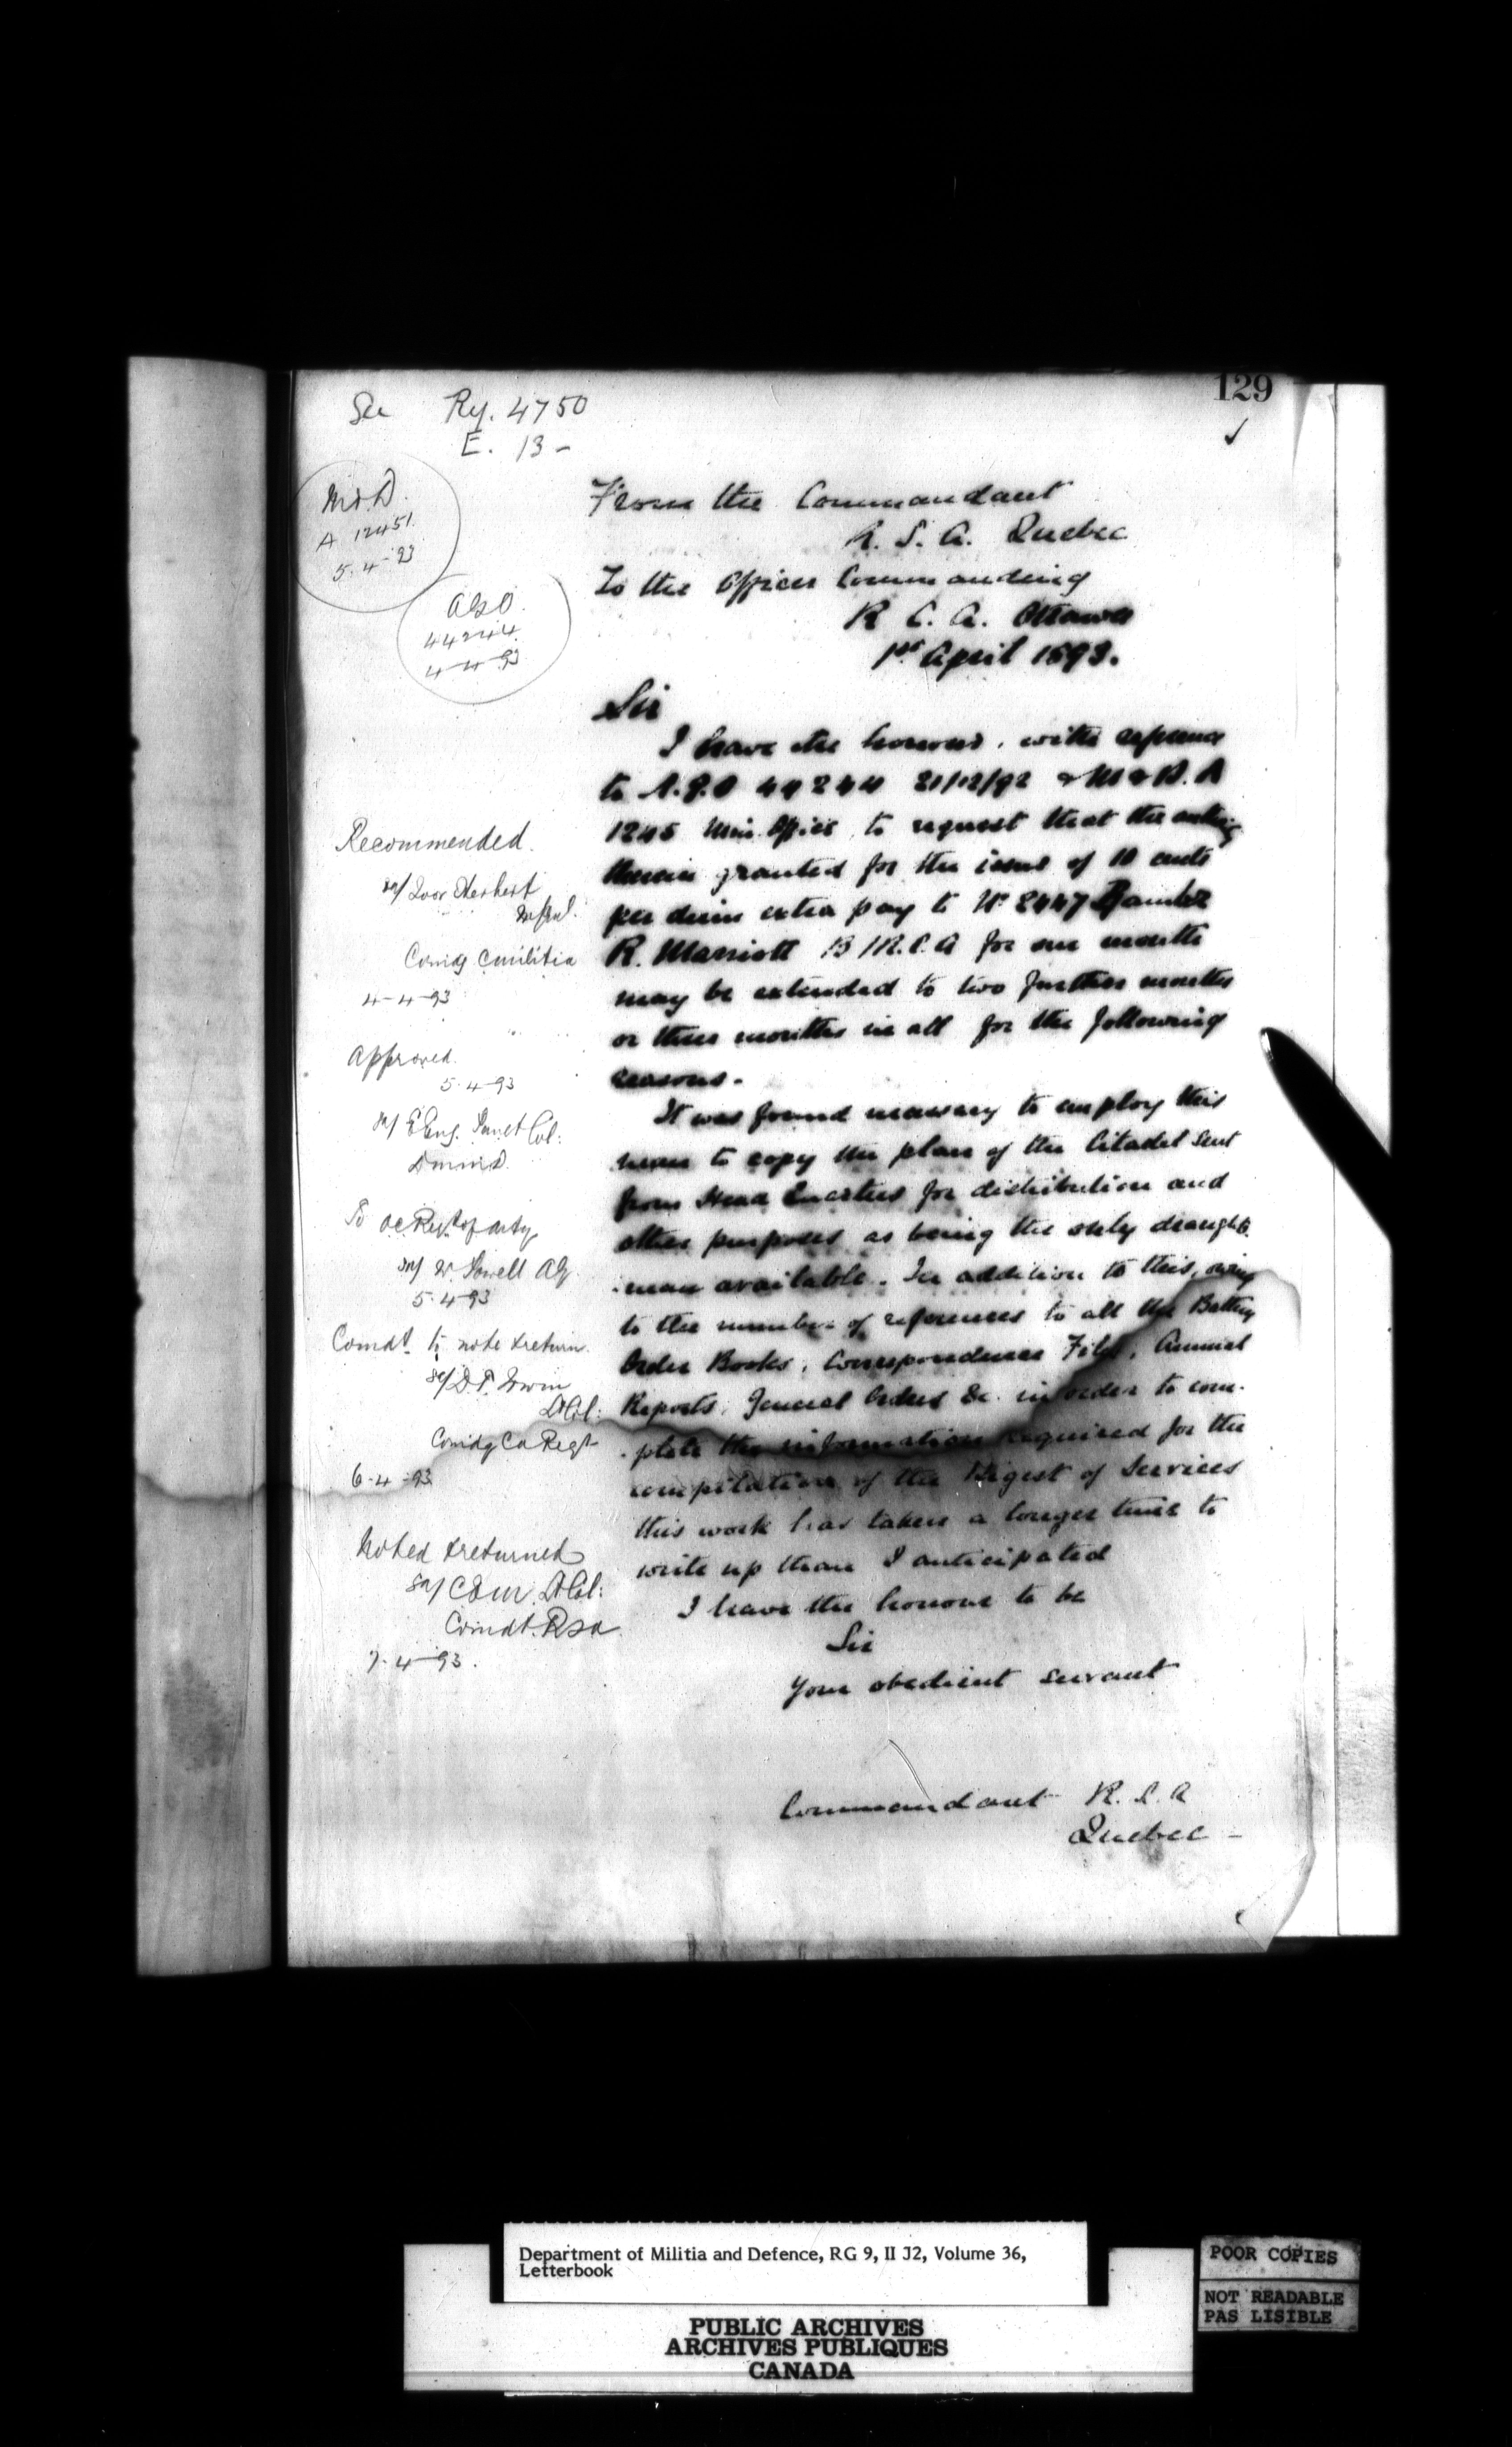 129
See Rg. 4750
E. 13 -
M & D.
A 12451
5-4-93
AGO.
44244
4-4-93
From the Commandant
R. S. A. Quebec
To the Officer Commanding
R C. A. Ottawa
1st April 1893.
Sir
I have the honour, with reference
to A.G.O 44244 21/12/92 & M & D. A
1245 Min. Office, to request that the
therein granted for the issue of 10 cents
per diem extra pay to No 2447
R. Marriott B R.C.A for one month
may be extended to two further months
or three months in all for the following
reasons.
It was found necessary to employ this
man to copy the plan of the Citadel sent
from Head Quarters for distribution and
other purposes as being the only draughts
-man available. In addition to this, owing
to the number of references to all the Battery
Order Books, Correspondence Files, Annual
Reports, General Orders &c. in order to com-
-plete the information required for the
compilation of the Digest of Services
this work has taken a longer time to
write up than I anticipated
I have the honour to be
Sir
Your obedient servant
Commandant R. S. A
Quebec -
Recommended.
sn/ Ivor Herbert
M Genl.
Comdg C militia
4-4-93
Approved.
5-4-93
sn/
To OC Regt of Arty
sn/ W. Powell AG
5-4-93
Comdt to note & return.
sn/ D.T. Irwin
Lt Col:
Comdg Ca Regt
6-4-93
Noted & returned
sn/ Lt Col:
Comdt. RSA.
7-4-93.
Department of Militia and Defence, RG 9, II J2, Volume 36,
Letterbook
PUBLIC ARCHIVES
ARCHIVES PUBLIQUES
CANADA
POOR COPIES
NOT READABLE
PAS LISIBLE